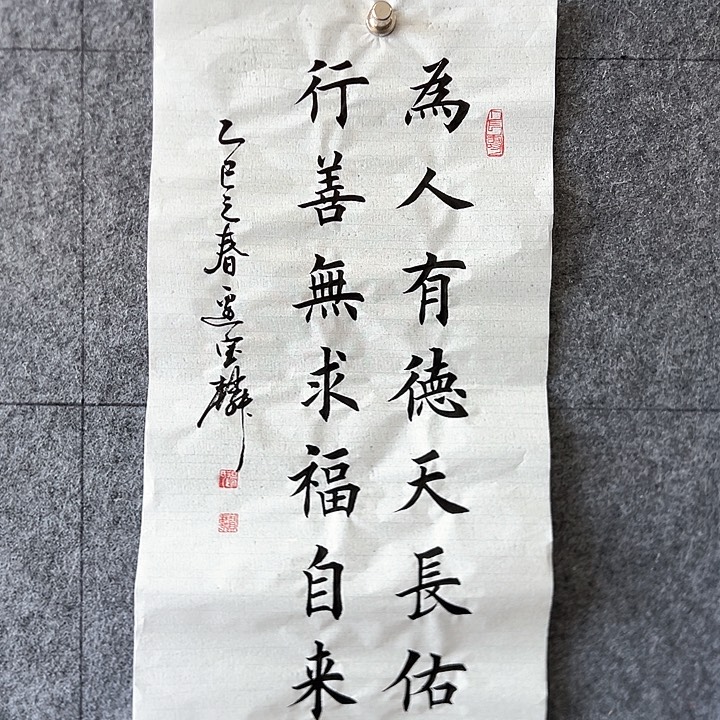 為人有德天長佑
行善無求福自来
乙巳之春